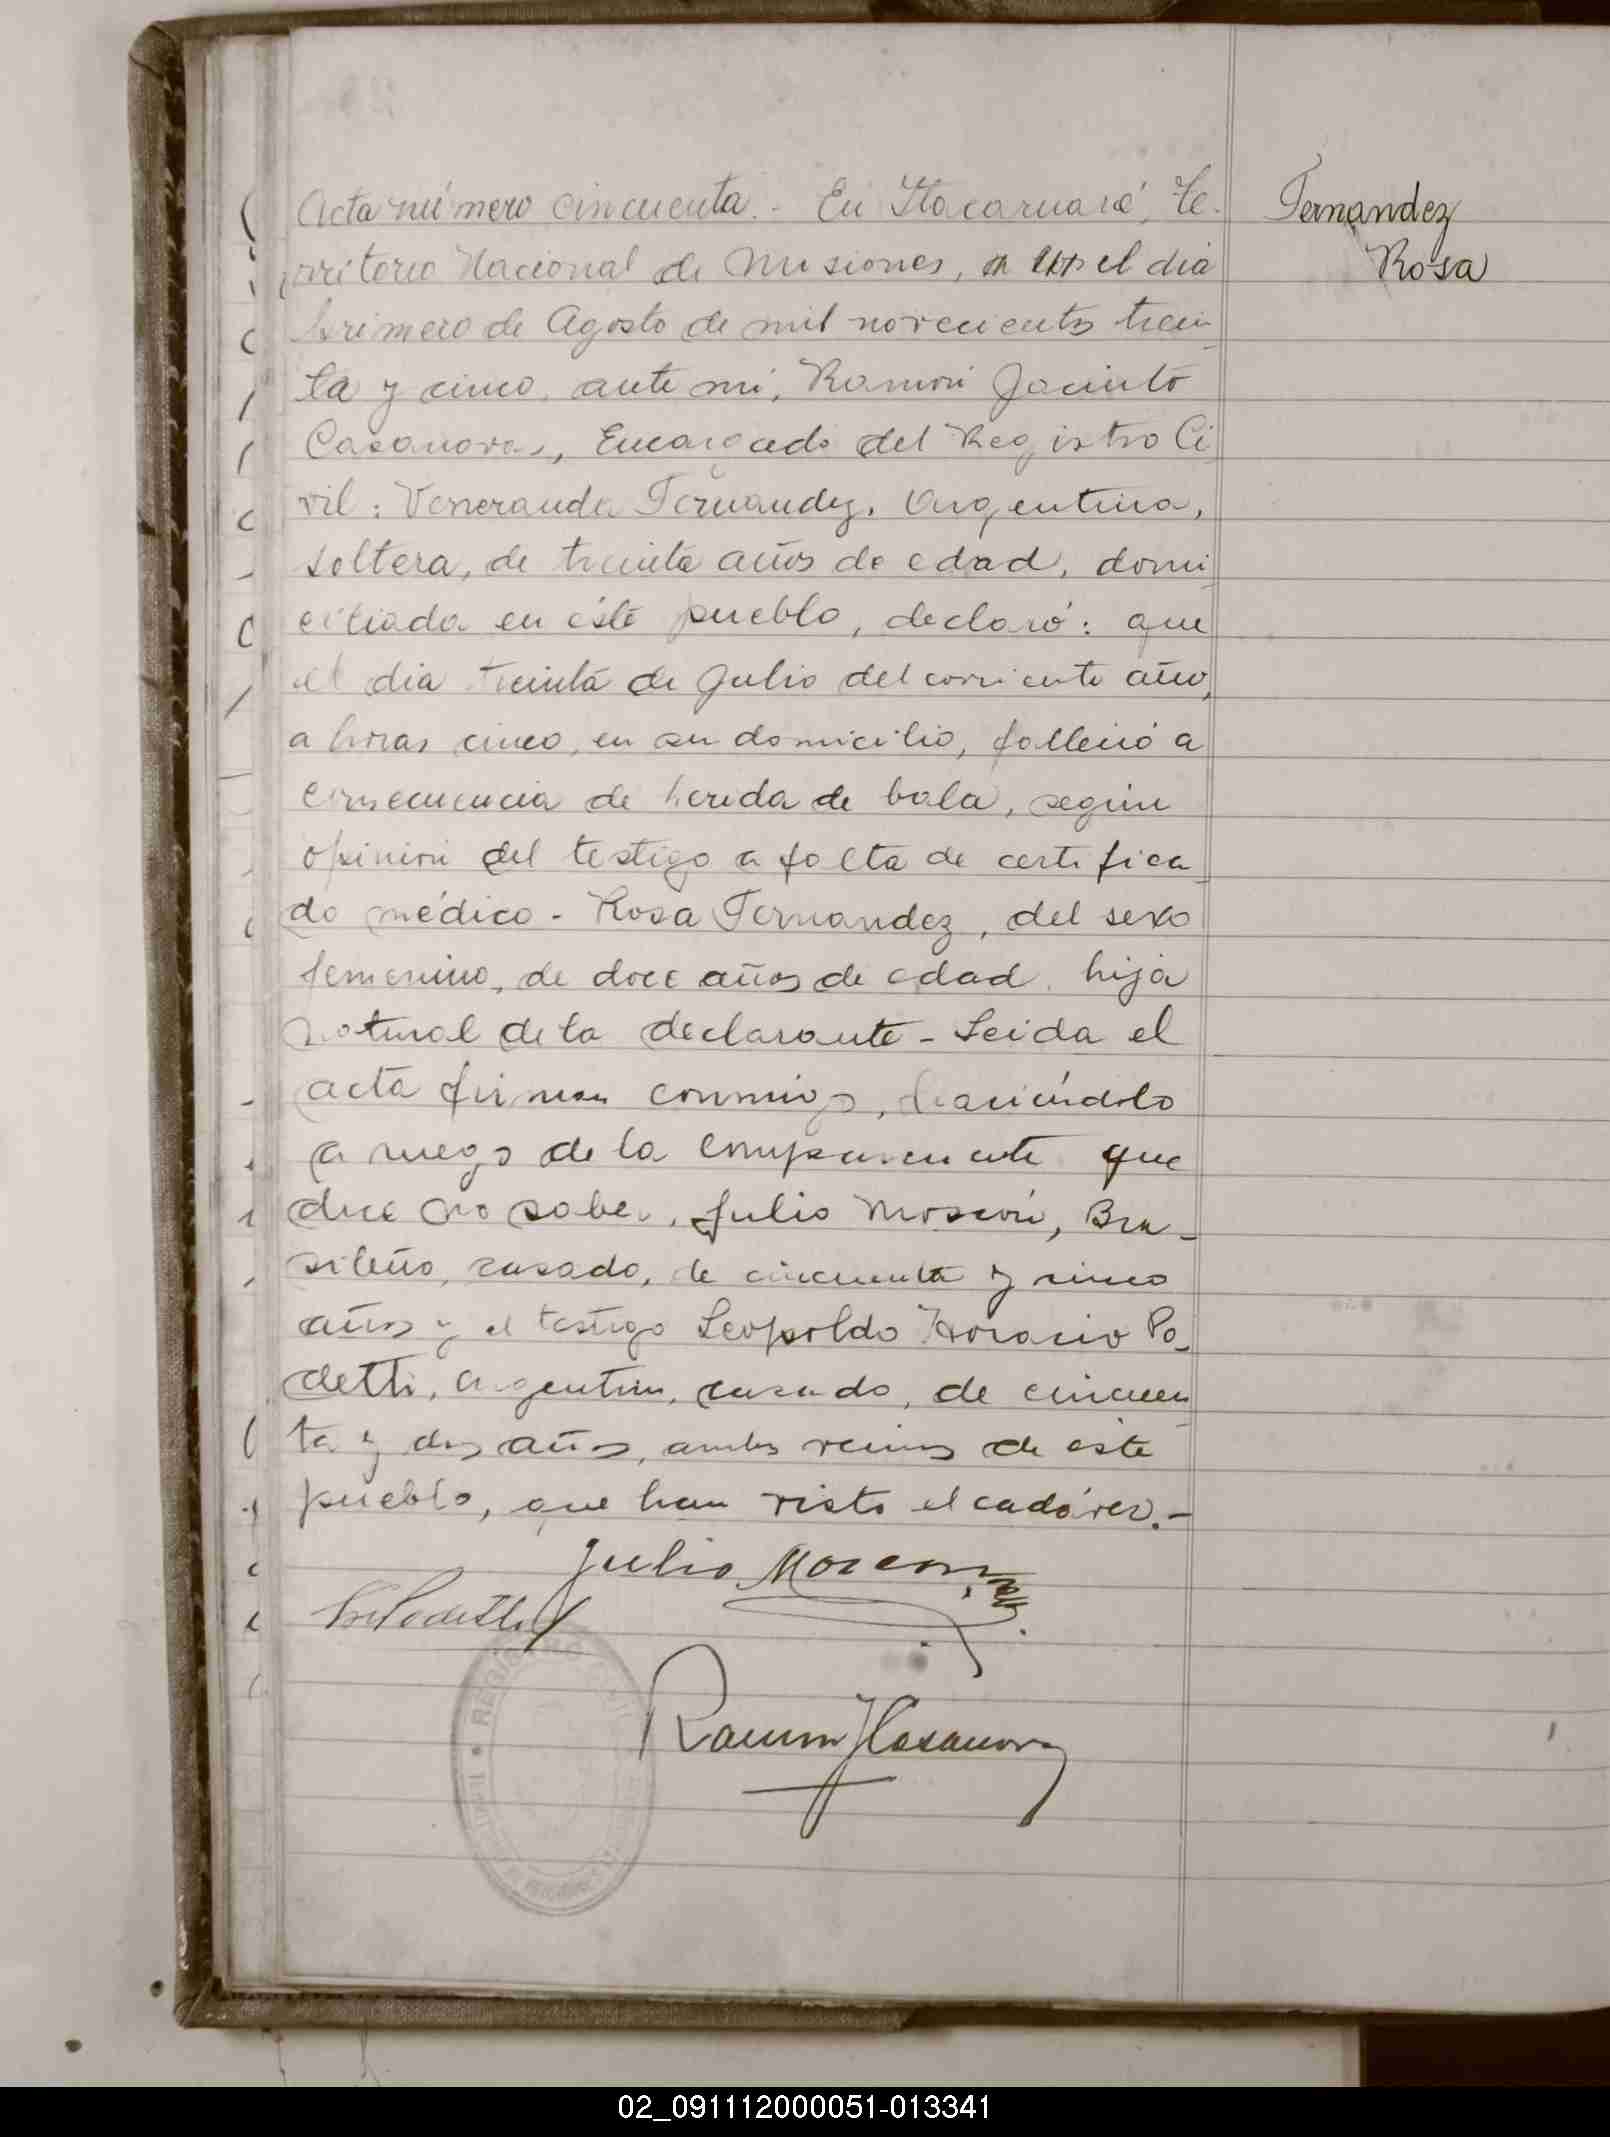 Acta número cincuenta.- En Itacaruaré, Te-
rritorio Nacional de Misiones, el dia
primero de Agosto de mil novecientos trein-
ta y cinco, ante mi, Ramón Jacinto
Casanovas, Encargado del Registro Ci-
vil: Veneranda Fernandez, Argentina,
soltera, de treinta años de edad, domi-
ciliada en éste pueblo, declaró: que
el dia treinta de Julio del corriente año,
a horas cinco, en su domicilio, falleció a
consecuencia de herida de bala, según
opinión del testigo a falta de certifica-
do médico - Rosa Fernandez, del sexo
femenino, de doce años de edad, hija
natural de la declarante - Leida el
acta firman conmigo, haciéndolo
a ruego de la compareciente que
dice no saber, Julio Moscón, Bra-
sileño, casado, de cincuenta y cinco
años y el testigo Leopoldo Horacio Po-
detti, argentino, casado, de cincuen-
ta y dos años, ambos vecinos de éste
pueblo, que han visto el cadáver.-
Fernandez
Rosa
Julio Moscon
Podetti
Ramon J Casanovas
REGISTRO CIVIL
02_091112000051-013341